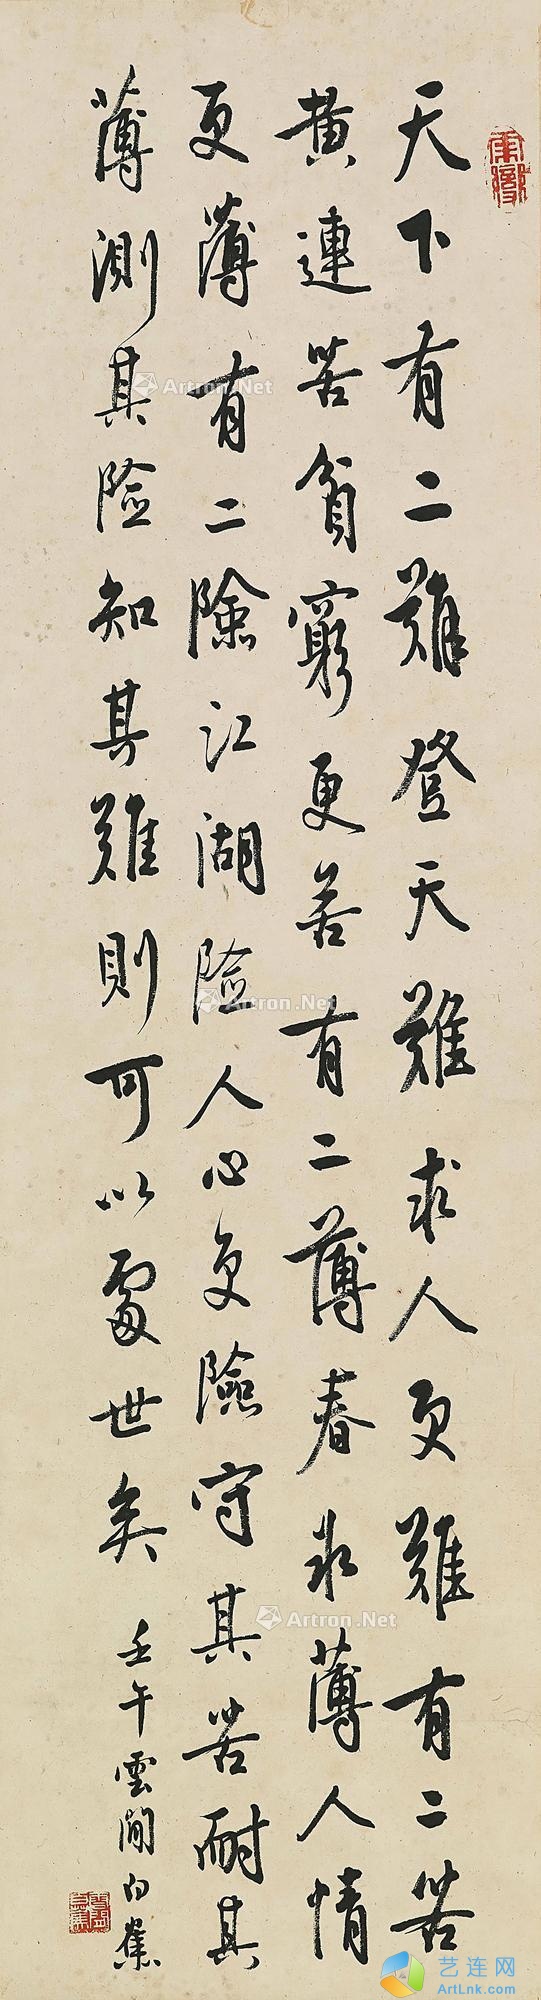 天下有二難登天難求人更難有二苦
黄連苦貧窮更苦有二薄春冰薄人情
更薄有二險江湖險人心更險守其苦耐其
薄測其險知其難則可以處世矣
壬午雲間白蕉
Artron.Net
Artron.Net
Artron.Net
艺连网
ArtLnk.com